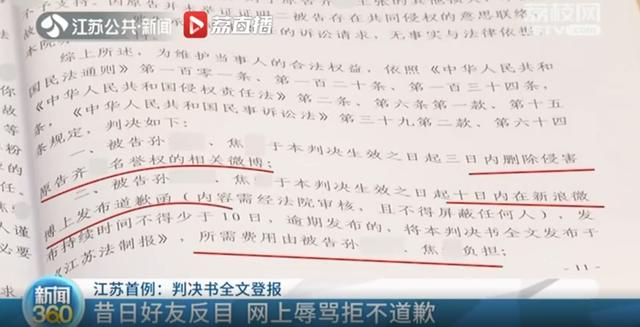 江苏公共·新闻 荔直播
荔枝网
院
综上所述，为维护当事人的合法权益，依照《中华人民共和
国民法通则》第一百零一条、第一百二十条、第一百三十四条，
《中华人民共和国侵权责任法》第二条、第六条第一款、第十五
条，《中华人民共和国民事诉讼法》第三十九条第二款、第六十四
条规定，判决如下：
一、被告孙 、焦 于本判决生效之日起三日内删除侵害
原告齐 名誉权的相关微博；
二、被告孙 、焦 于本判决生效之日起十日内在新浪微
博上发布道歉函（内容需经法院审核，且不得屏蔽任何人），发
布持续时间不得少于10日，逾期发布的，将本判决书全文发布于
《江苏法制报》，所需费用由被告孙 、焦 负担；
- 11 -
新闻
360
江苏首例：判决书全文登报
昔日好友反目 网上辱骂拒不道歉